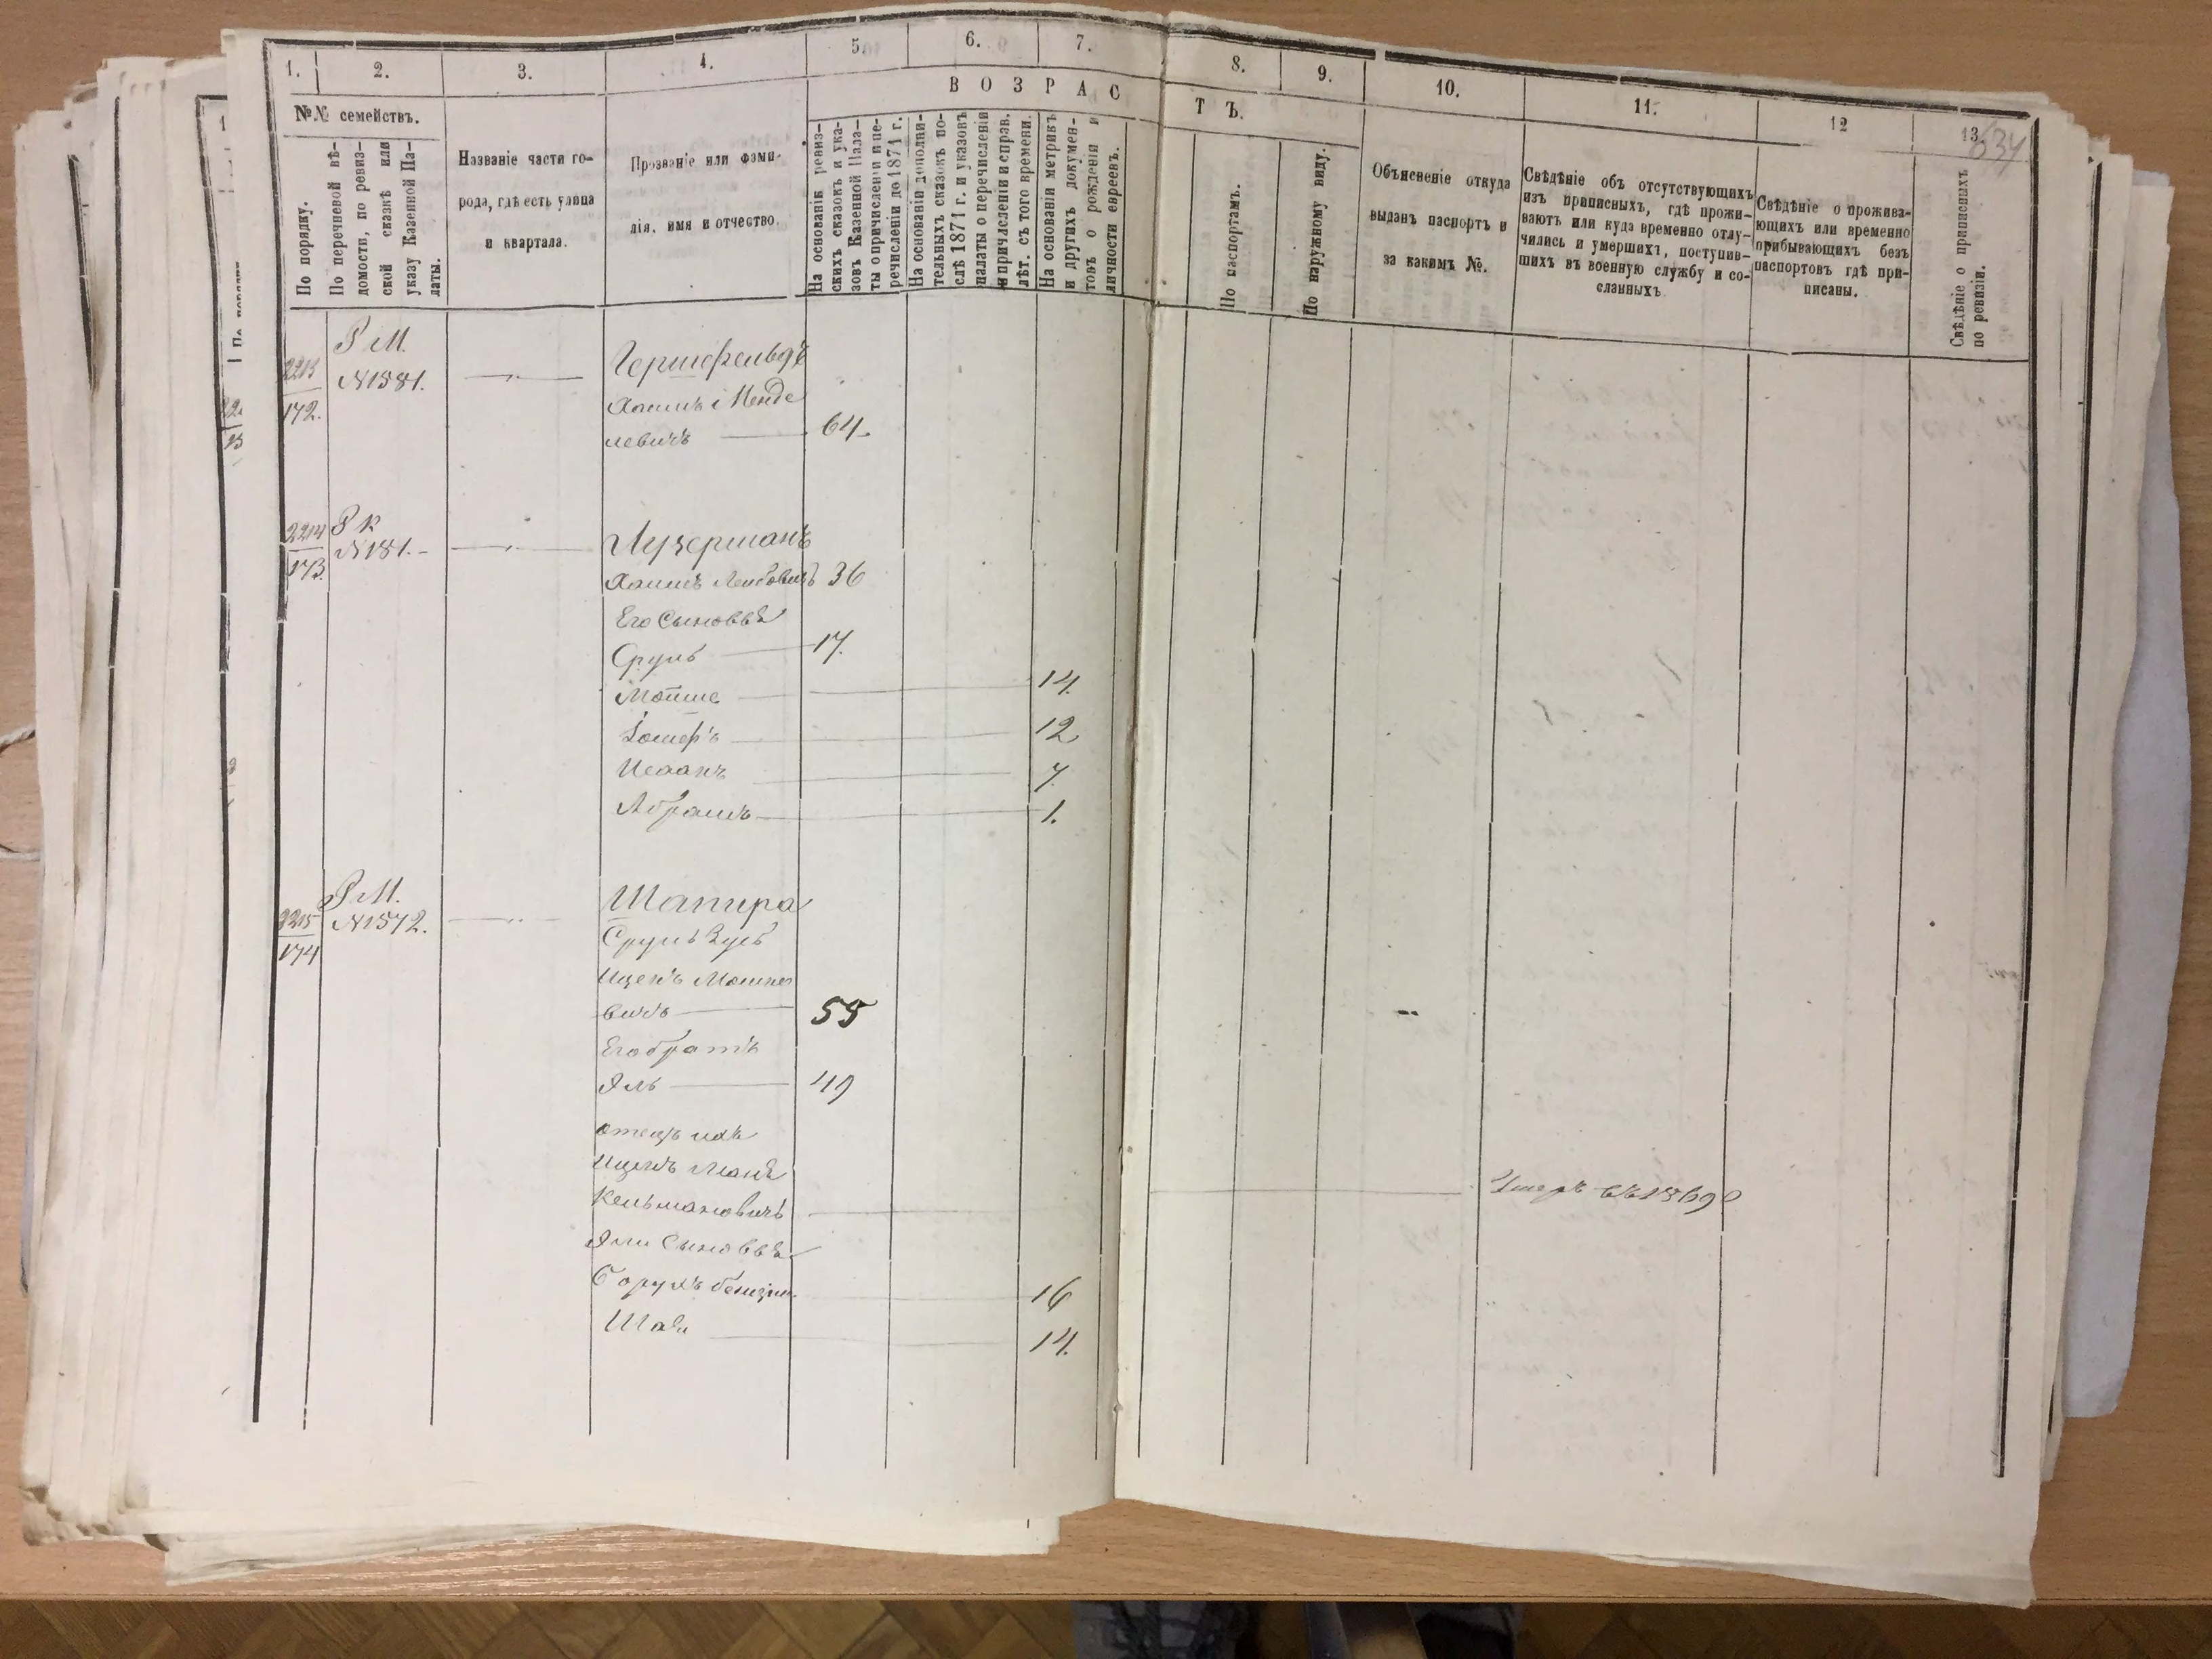 1. 2. 3. 4. 5. 6. 7. 8. 9. 10. 11. 12 13.
634
В О З Р А С Т Ъ.
№№ семействъ.
По порядку.
По перечневой вѣ-
домости, по ревиз-
ской сказкѣ или
указу Казенной Па-
латы.
Названіе части го-
рода, гдѣ есть улица
и квартала.
Прозваніе или фами-
лія, имя и отчество.
На основаніи ревиз-
скихъ сказокъ и ука-
зовъ Казенной Пала-
ты о причисленіи и пе-
речисленіи до 1871 г.
На основаніи дополни-
тельныхъ сказокъ по-
слѣ 1871 г. и указовъ
палаты о перечисленіи
и причисленіи и справ.
лѣт. съ того времени.
На основаніи метрикъ
и другихъ докумен-
товъ о рожденіи и
личности евреевъ.
По паспортамъ.
По наружному виду.
Объясненіе откуда
выданъ паспортъ и
за какимъ №.
Свѣдѣніе объ отсутствующихъ
изъ приписныхъ, гдѣ прожи-
ваютъ или куда временно отлу-
чились и умершихъ, поступив-
шихъ въ военную службу и со-
сланныхъ
Свѣдѣніе о прожива-
ющихъ или временно
прибывающихъ безъ
паспортовъ гдѣ при-
писаны.
Свѣдѣніе о приписныхъ
по ревизіи.
2213
172.
Р М.
N1581.
Гершфельдъ
Хаимъ Менде
левичъ 64
2214
173.
Р К
N181.
Лузерманъ
Хаимъ Лейбовичъ 36
Его Сыновья
Срулъ 17.
Мойше 14.
Іосифъ 12
Исаакъ 7.
Абрамъ 1.
2215
174
Р М.
N1572.
Шапира
Срулъ Зусь
Ицекъ Мошко
вичъ 55
Его братъ
Яль 49
отецъ ихъ
Кельмановичъ Умеръ въ 1869
Яли Сыновья
Борухъ 16
14.